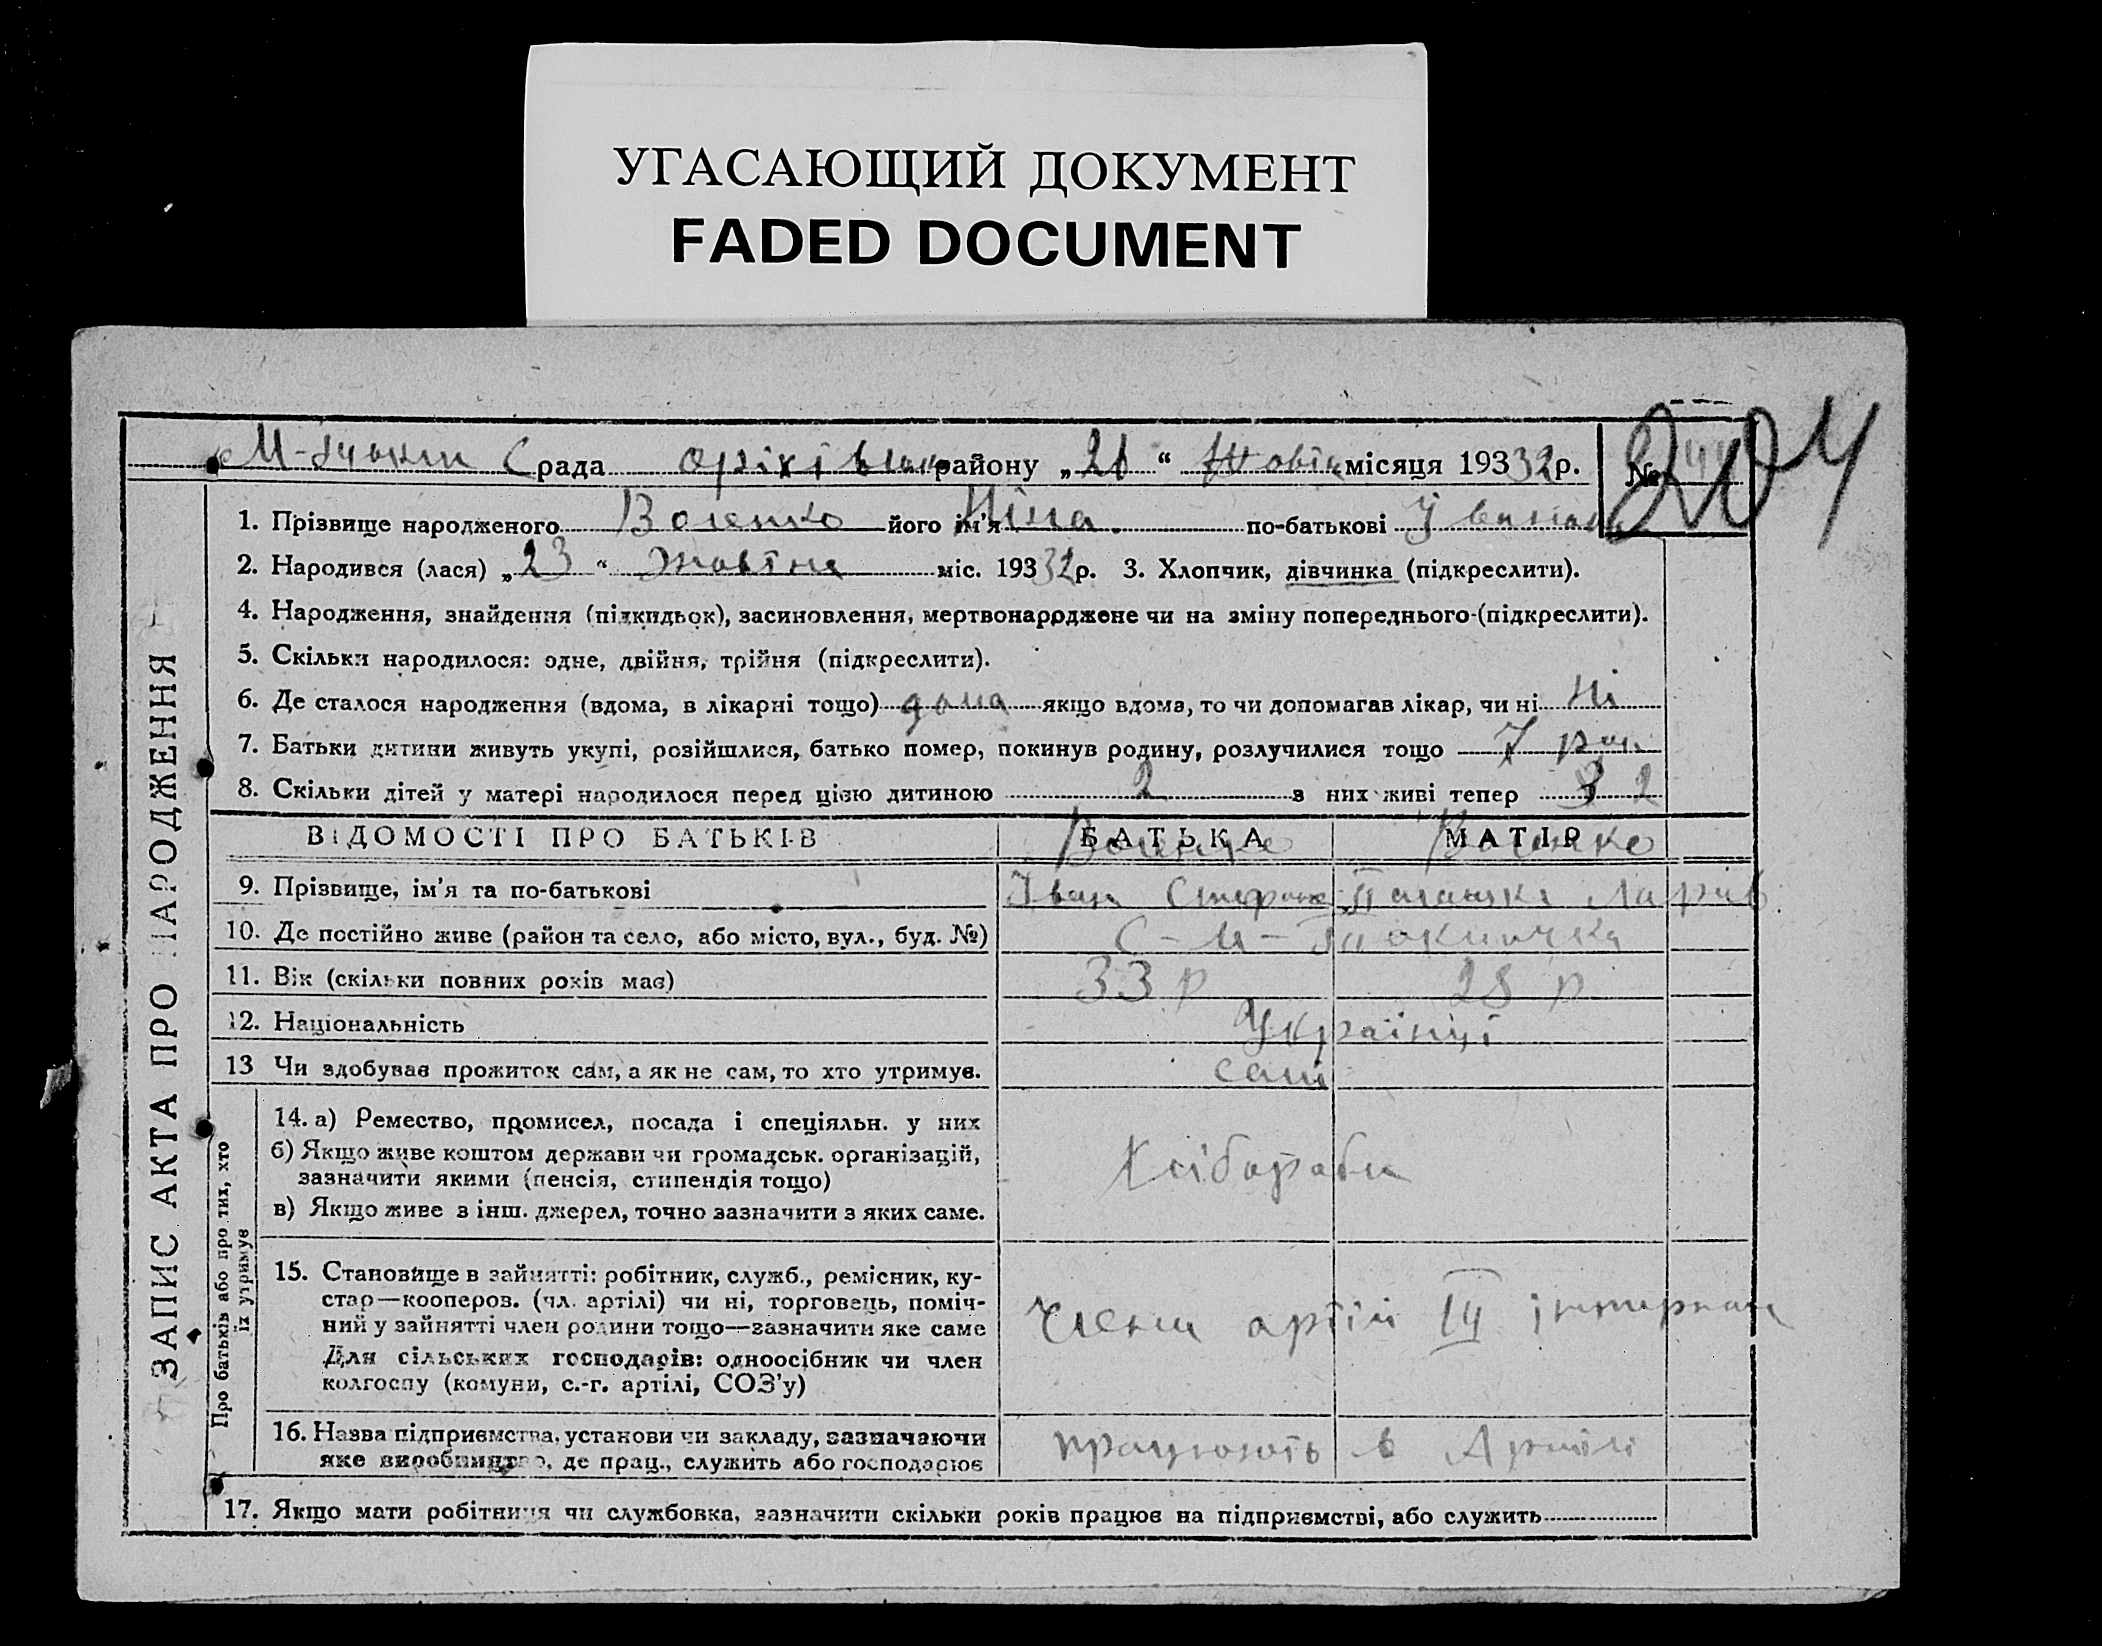 УГАСАЮЩИЙ ДОКУМЕНТ
FADED DOCUMENT
ЗАПИС АКТА ПРО НАРОДЖЕННЯ
С рада району „ “ місяця 193 32 р. № 204
1. Прізвище народженого Воленко його ім'я Ніна. по-батькові
2. Народився (лася) „ 23 “ Жовтня міс. 193 32 р. 3. Хлопчик, дівчинка (підкреслити).
4. Народження, знайдення (підкидьок), засиновлення, мертвонарoджене чи на зміну попереднього (підкреслити).
5. Скільки народилося: одне, двійня, трійня (підкреслити).
6. Де сталося народження (вдома, в лікарні тощо) дома якщо вдома, то чи допомагав лікар, чи ні Ні
7. Батьки дитини живуть укупі, розійшлися, батько помер, покинув родину, розлучилися тощо 7 рок
8. Скільки дітей у матері народилося перед цією дитиною 2 з них живі тепер 2
ВІДОМОСТІ ПРО БАТЬКІВ БАТЬКА МАТІР
Воленко Воленко
9. Прізвище, ім'я та по-батькові Іван Стефан Палашка Ларів
10. Де постійно живе (район та село, або місто, вул., буд. №) С-М-Токмачка
11. Вік (скільки повних років має) 33 р 28 р
12. Національність Українці
13 Чи здобував прожиток сам, а як не сам, то хто утримує. самі
Про батьків або про тих, хто їх утримує
14. а) Ремество, промисел, посада і спеціяльн. у них
б) Якщо живе коштом держави чи громадськ. організацій,
зазначити якими (пенсія, стипендія тощо)
в) Якщо живе з інш. джерел, точно зазначити з яких саме.
Хліборобы
15. Становище в зайнятті: робітник, служб., ремісник, ку-
стар—кооперов. (чл. артілі) чи ні, торговець, поміч-
ний у зайнятті член родини тощо—зазначити яке саме
Для сільських господарів: одноосібник чи член
колгоспу (комуни, с.-г. артілі, СОЗ'у)
Члени артілі інтернац
16. Назва підприємства, установи чи закладу, зазначаючи
яке виробництво, де прац., служить або господарює
працюють в Артілі
17. Якщо мати робітниця чи службовка, зазначити скільки років працює на підприємстві, або служить